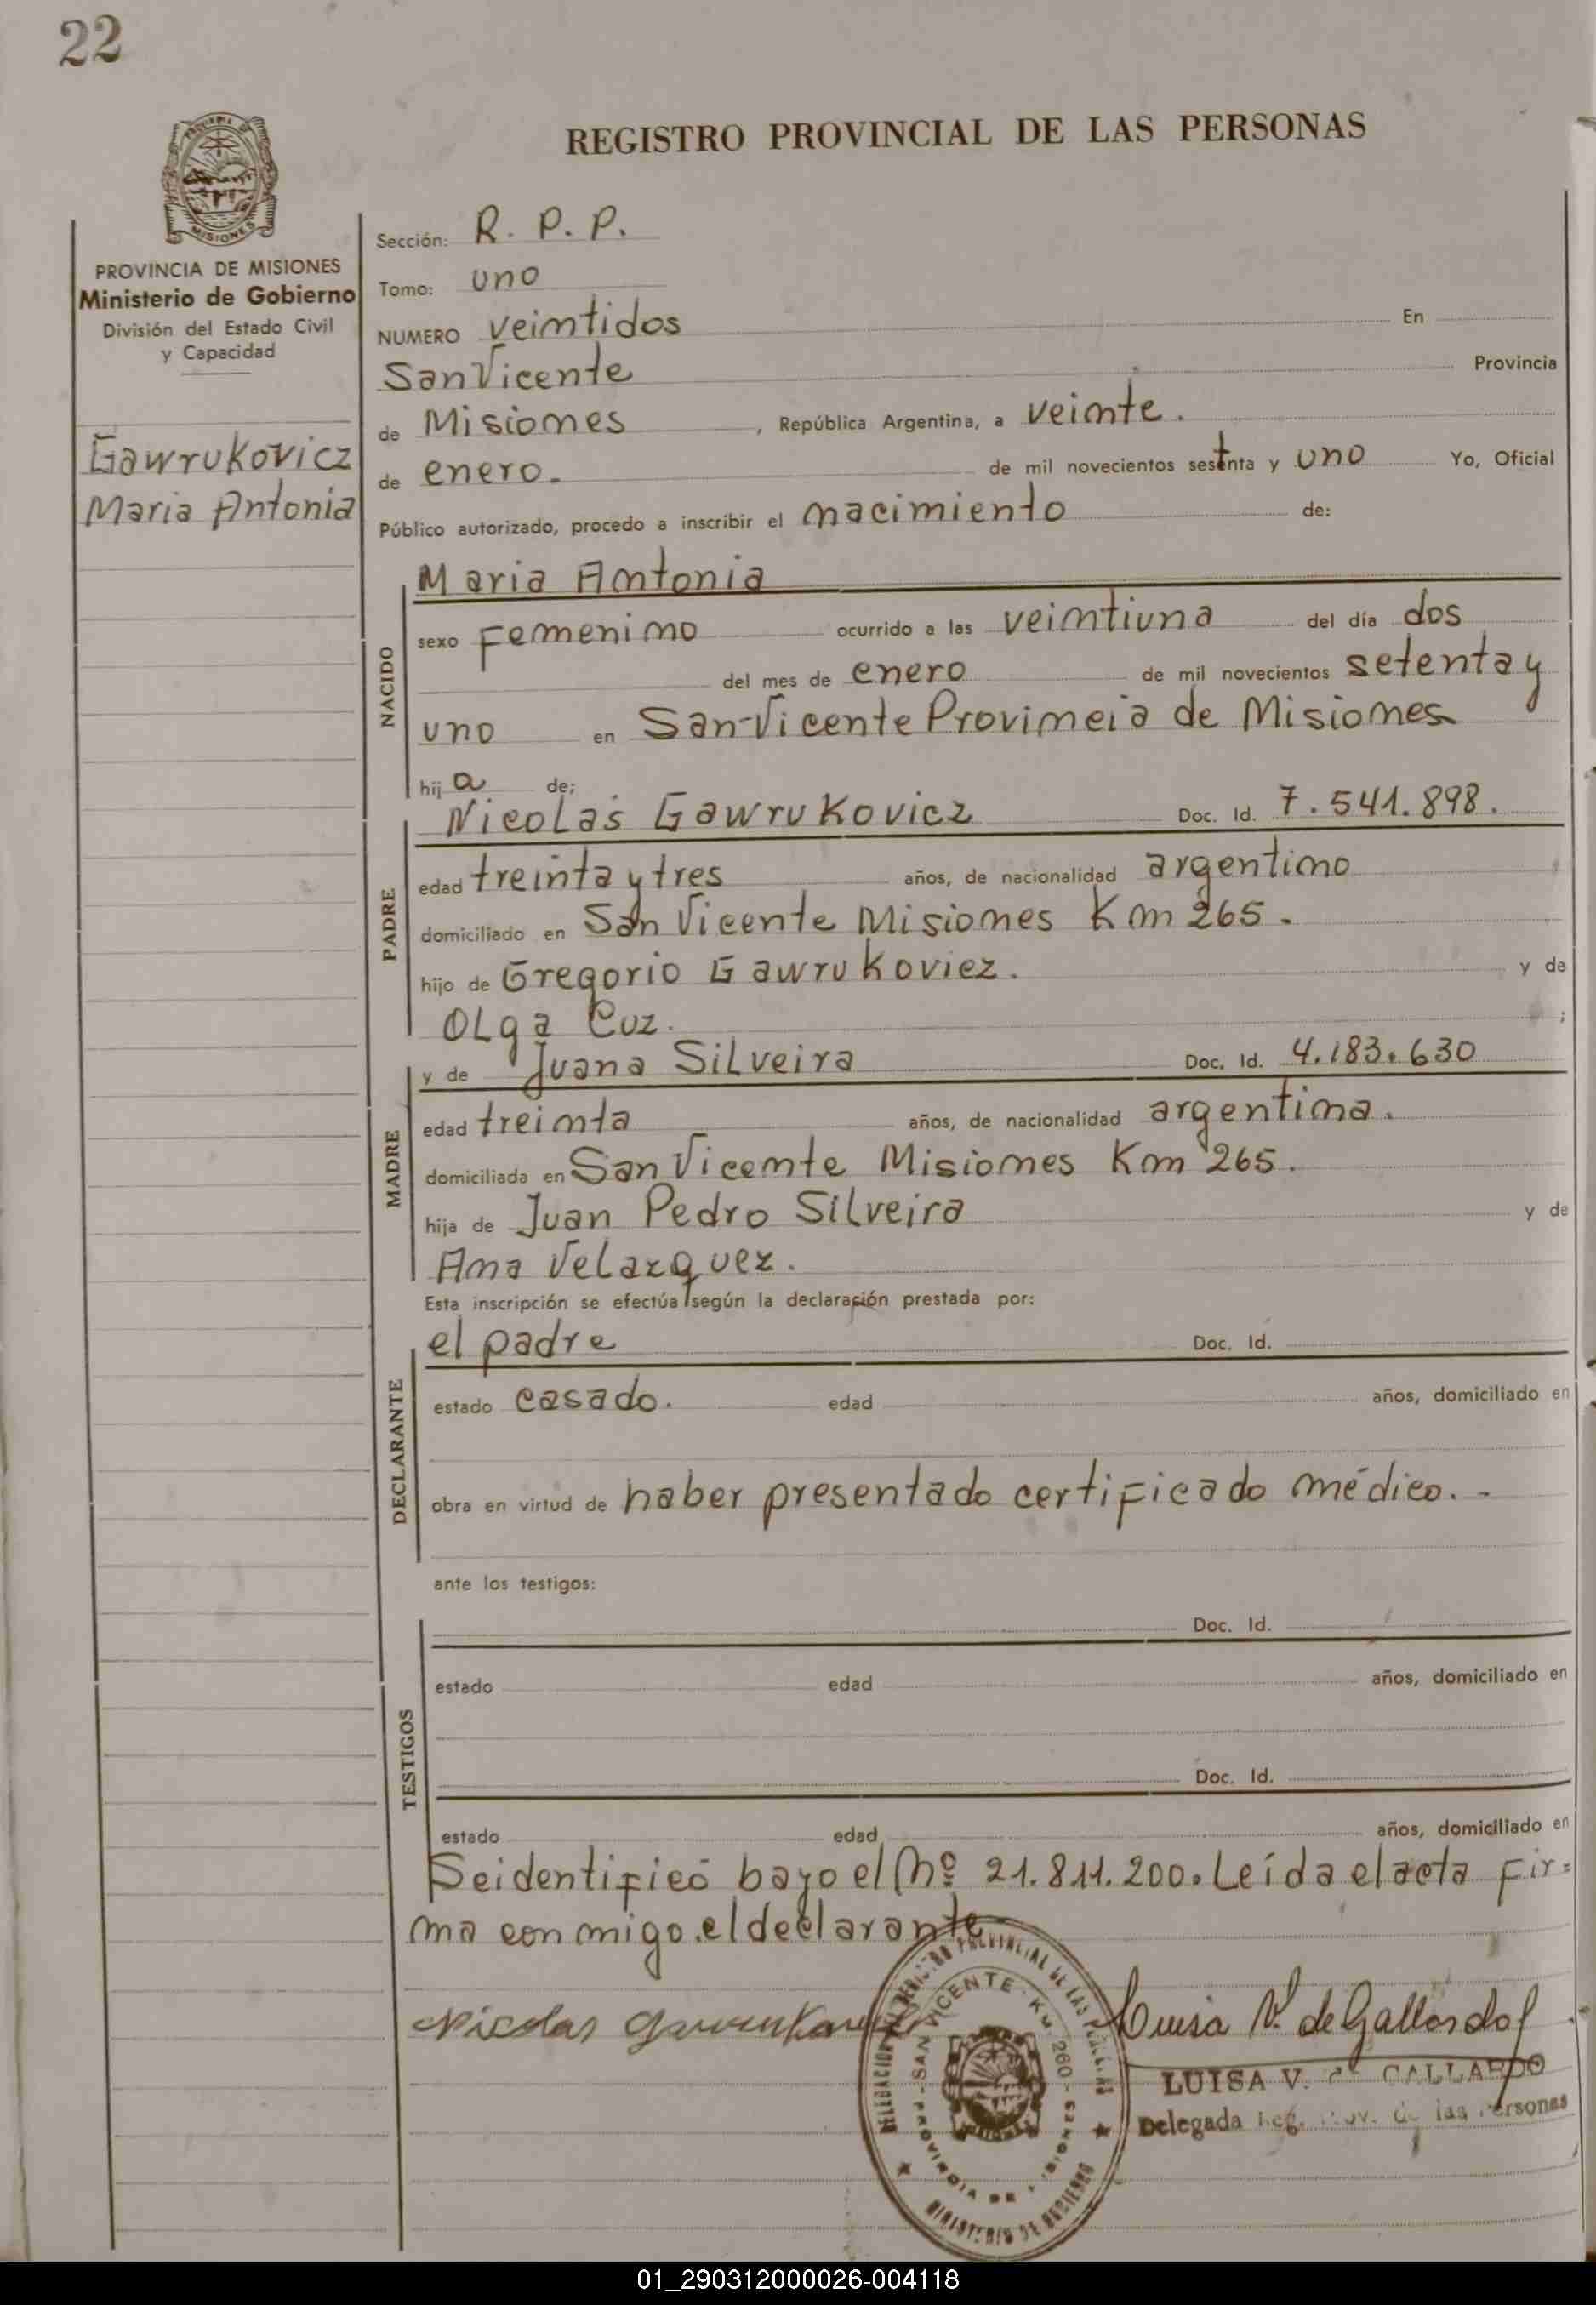 22
REGISTRO PROVINCIAL DE LAS PERSONAS
MISIONES
PROVINCIA DE MISIONES
Ministerio de Gobierno
División del Estado Civil
y Capacidad
Gawrukovicz
Maria Antonia
Sección: R. P. P.
Tomo: uno
NUMERO veintidos En
San Vicente Provincia
de Misiones, República Argentina, a veinte.
de enero. de mil novecientos setenta y uno Yo, Oficial
Público autorizado, procedo a inscribir el nacimiento de:
NACIDO
Maria Antonia
sexo Femenino ocurrido a las veintiuna del día dos
del mes de enero de mil novecientos setenta y
uno en San Vicente Provincia de Misiones
hija de:
PADRE
Nicolás Gawrukovicz Doc. Id. 7.541.898.
edad treinta y tres años, de nacionalidad argentino
domiciliado en San Vicente Misiones Km 265.
hijo de Gregorio Gawrukovicz. y de
Olga Cuz. ;
MADRE
y de Juana Silveira Doc. Id. 4.183.630
edad treinta años, de nacionalidad argentina.
domiciliada en San Vicente Misiones Km 265.
hija de Juan Pedro Silveira y de
Ana Velazquez.
Esta inscripción se efectúa según la declaración prestada por:
DECLARANTE
el padre Doc. Id.
estado casado. edad años, domiciliado en
obra en virtud de haber presentado certificado médico. -
ante los testigos:
TESTIGOS
Doc. Id.
estado edad años, domiciliado en
Doc. Id.
estado edad años, domiciliado en
Se identificó bajo el Nº 21.811.200. Leída el acta fir=
ma conmigo el declarante
Nicolas
Luisa V. de Gallardo
LUISA V. de GALLARDO
Delegada Reg. Prov. de las Personas
DELEGACION REGISTRO PROVINCIAL DE LAS PERSONAS
SAN VICENTE - Km. 260 - PROVINCIA DE MISIONES
MINISTERIO DE GOBIERNO
01_290312000026-004118